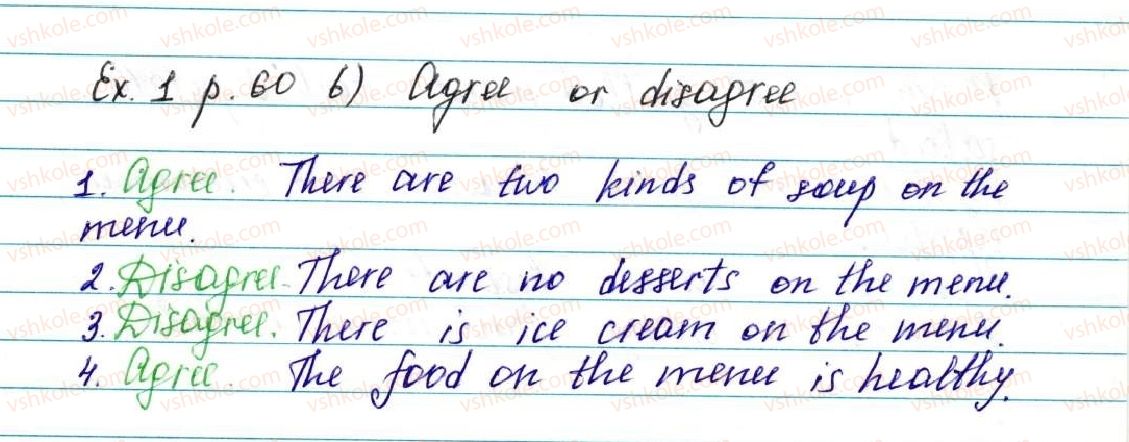 Ex. 1 p. 60 б) Agree or disagree
1. Agree. There are two kinds of soup on the
menu.
2. Disagree. There are no desserts on the menu.
3. Disagree. There is ice cream on the menu.
4. Agree. The food on the menu is healthy.